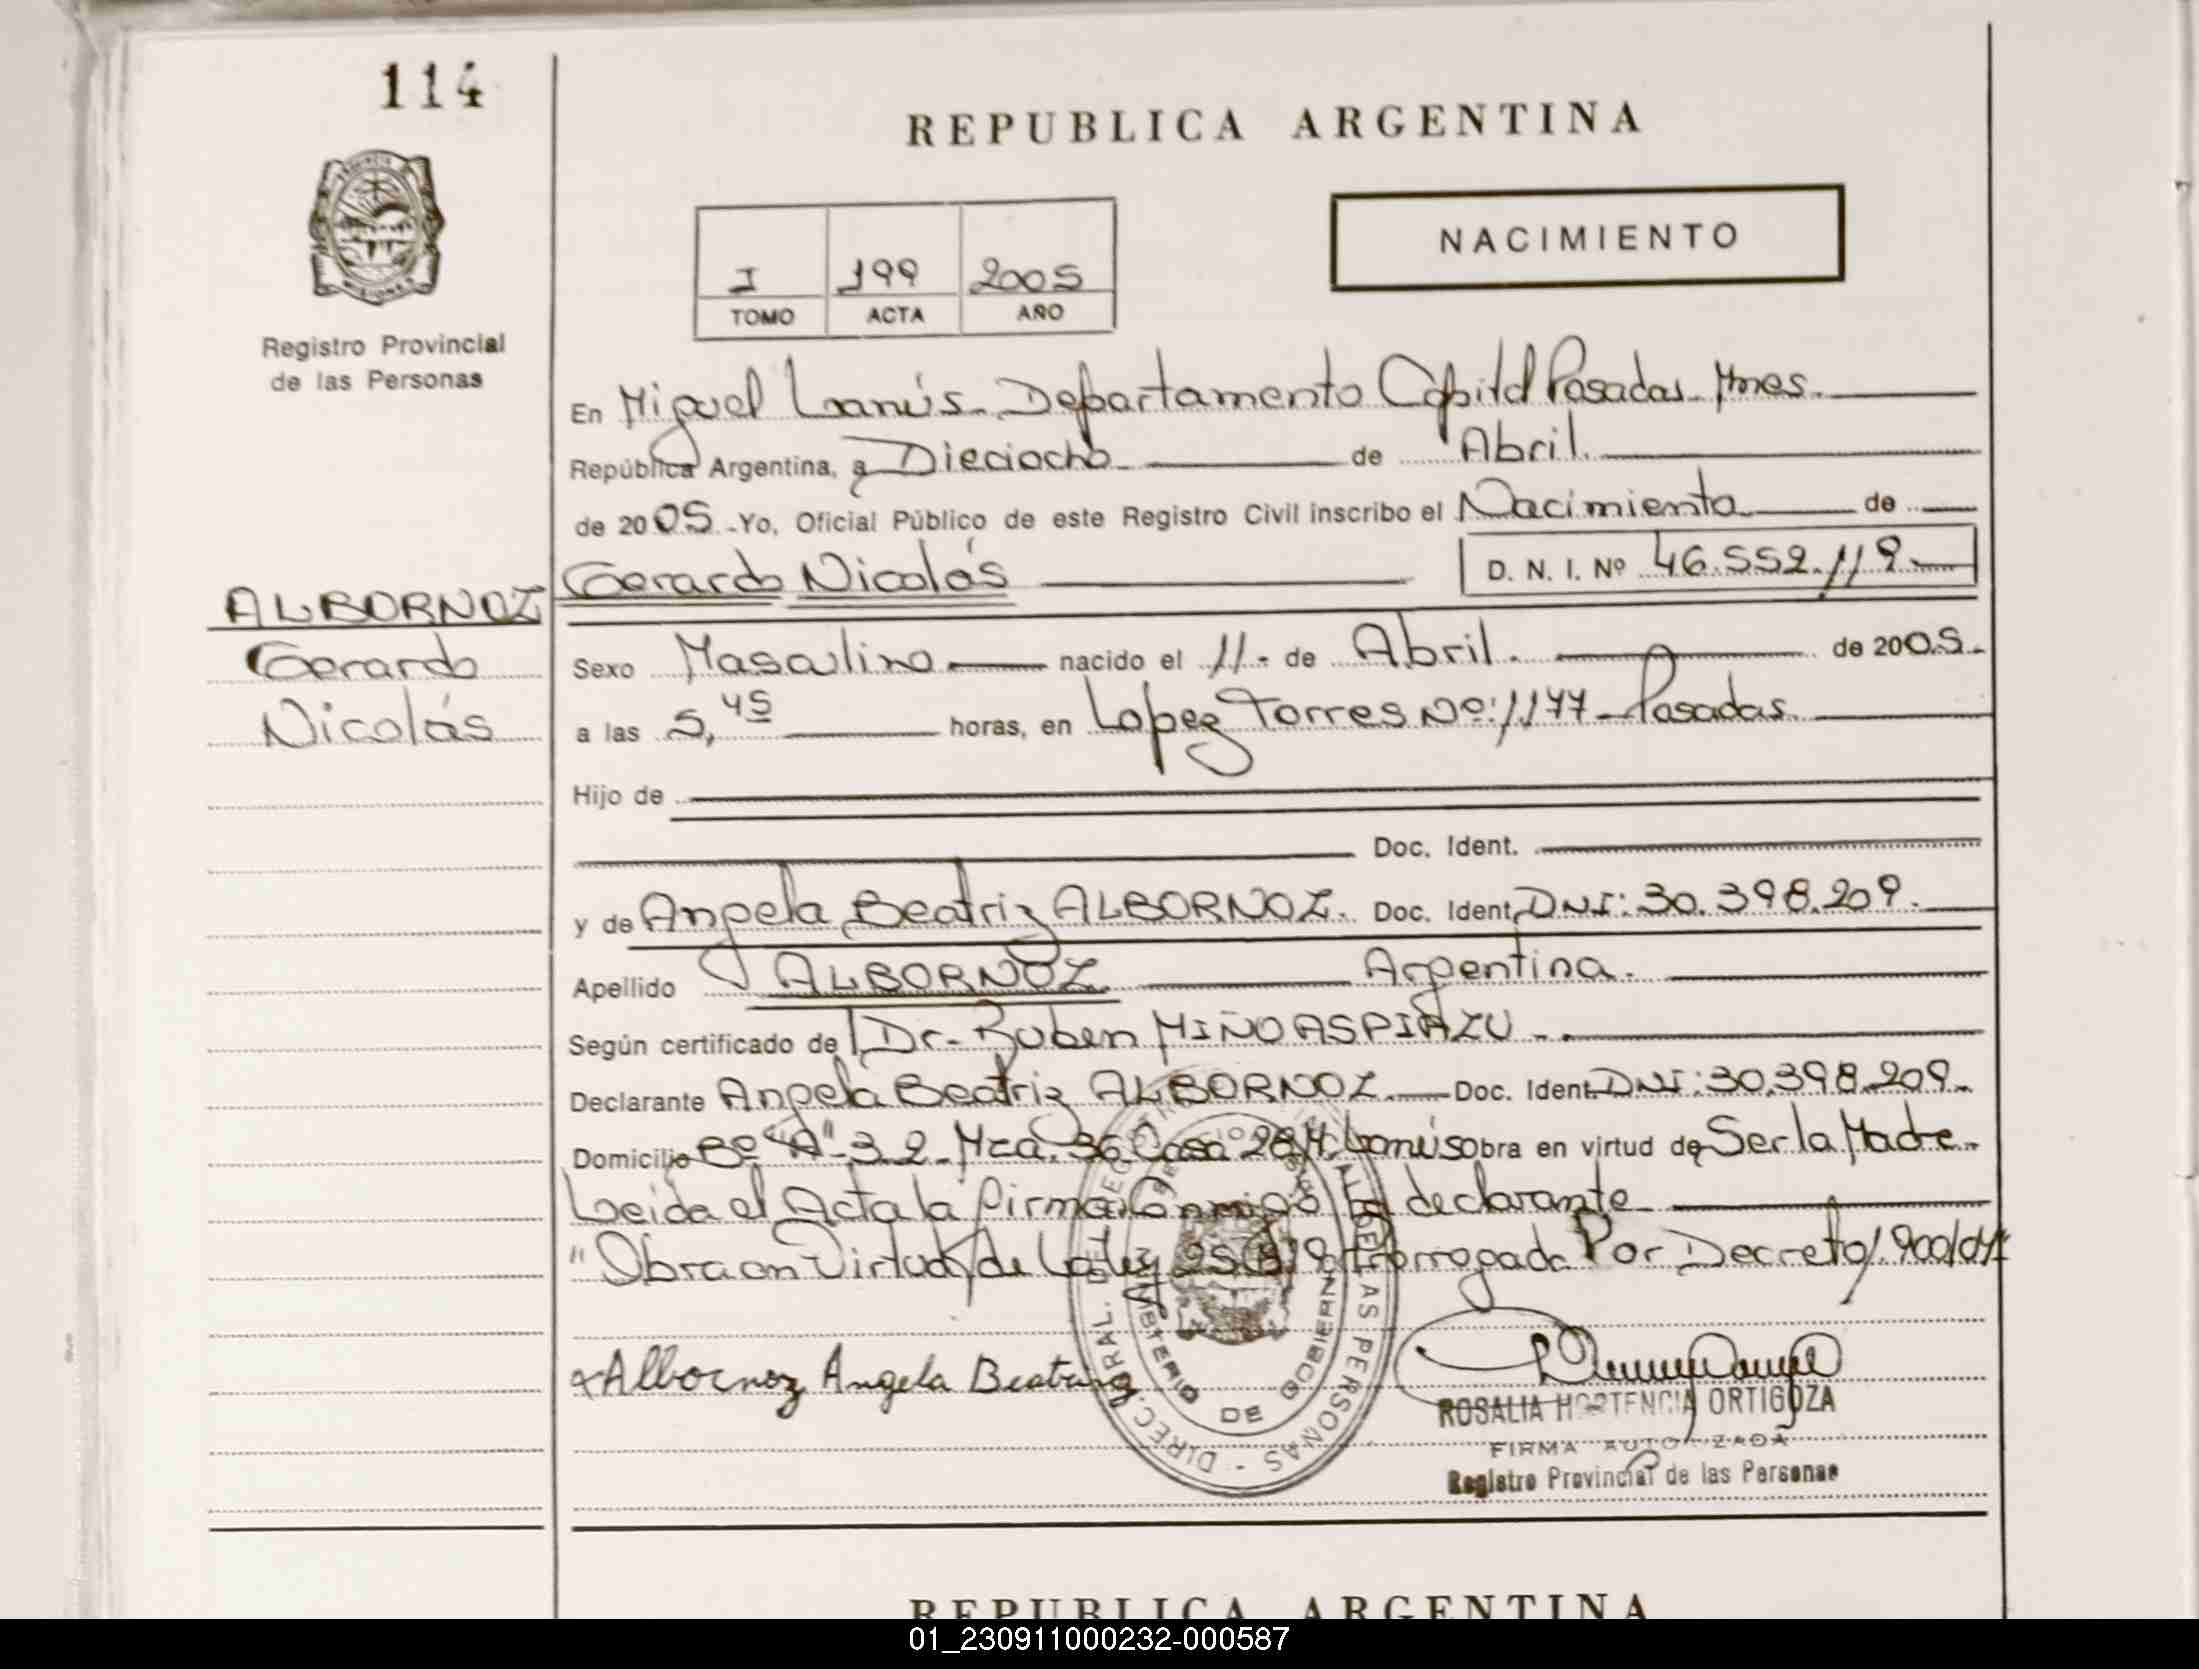 114
REPUBLICA ARGENTINA
NACIMIENTO
I 199 2005
TOMO ACTA AÑO
Registro Provincial
de las Personas
En Miguel Lanús. Departamento Capital Posadas. Mnes.
República Argentina, a Dieciocho de Abril.
de 2005. Yo, Oficial Público de este Registro Civil inscribo el Nacimiento de
Gerardo Nicolás D. N. I. Nº 46.552.119.
ALBORNOZ
Gerardo
Nicolás
Sexo Masculino nacido el 11. de Abril. de 2005.
a las 5,45 horas, en Lopez Torres Nº: 1177 - Posadas.
Hijo de
Doc. Ident.
y de Angela Beatriz ALBORNOZ. Doc. Ident. DNI: 30.398.209.
Apellido ALBORNOZ Argentina.
Según certificado de Dr. Ruben MIÑO ASPIAZU.
Declarante Angela Beatriz ALBORNOZ. Doc. Ident. DNI: 30.398.209.
Domicilio Bº "A" 3.2. Mza. 36 Casa 28 M. Lanús obra en virtud de Ser la Madre.
Leida el Acta la firma Conmigo la declarante
"Obra en Virtud de La Ley 25.819 Prorrogada Por Decreto 1.900/04
Albornoz Angela Beatriz
DIREC. GRAL. DEL REGISTRO DE LAS PERSONAS
MINISTERIO DE GOBIERNO
ROSALIA HORTENCIA ORTIGOZA
FIRMA AUTORIZADA
Registro Provincial de las Personas
REPUBLICA ARGENTINA
01_230911000232-000587